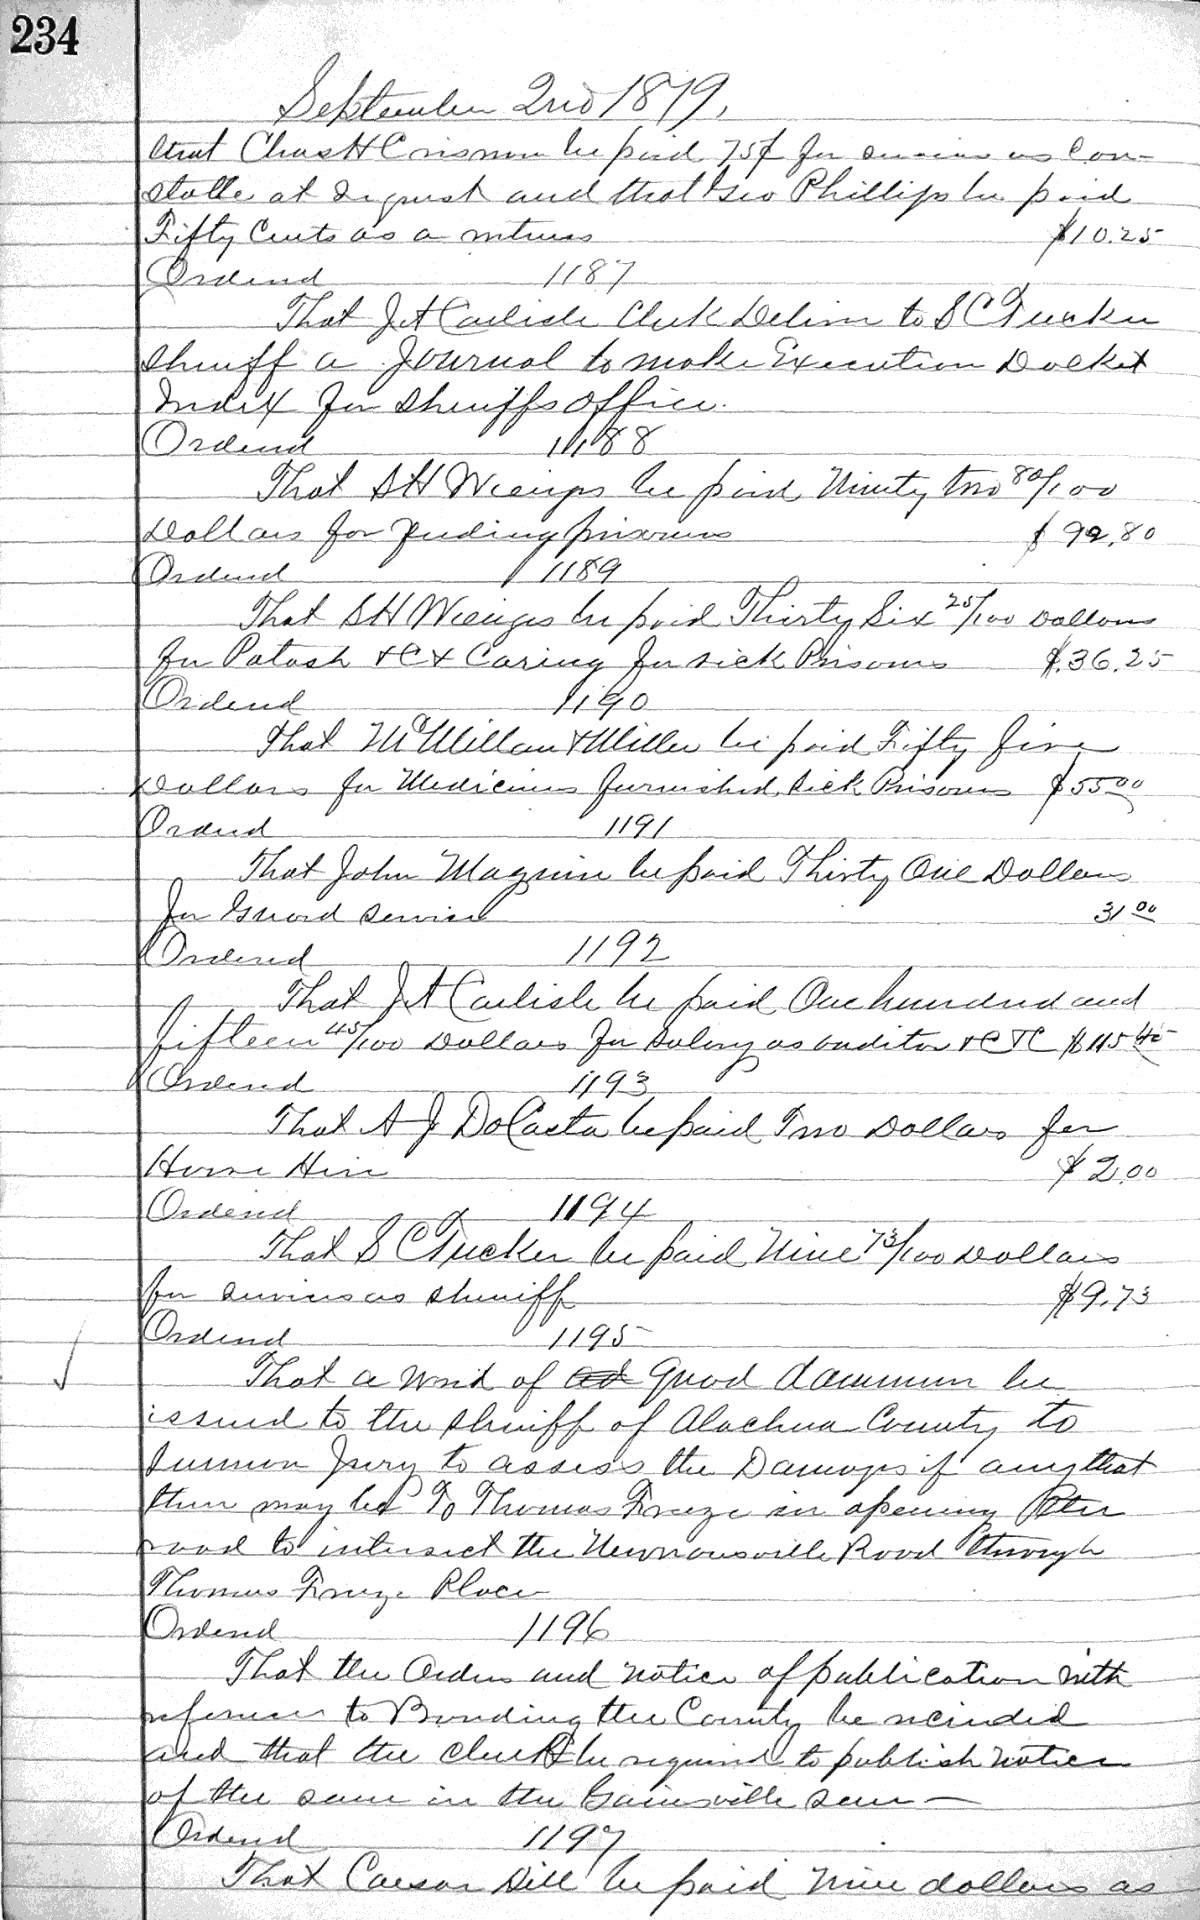 234
September 2nd 1879,
that Chas H Crisman be paid 75¢ for services as Con-
stable at Inquest and that Geo Phillips be paid
Fifty Cents as a witness $10.25
Ordered 1187
That J A Carlisle Clerk Deliver to S C Tucker
Sheriff a Journal to make Execution Docket
Index for Sheriffs office.
Ordered 1188
That S H Wienges be paid Ninety two 80/100
Dollars for feeding prisoners $92.80
Ordered 1189
That S H Wienges be paid Thirty Six 25/100 Dollars
for Potash &c & Caring for sick Prisoners $36.25
Ordered 1190
That McMillan & Miller be paid Fifty five
Dollars for Medicines furnished sick Prisoners $55.00
Ordered 1191
That John Maguire be paid Thirty One Dollars
for Guard service 31.00
Ordered 1192
That J A Carlisle be paid One hundred and
fifteen 45/100 Dollars for Salary as auditor &c &c $115.45
Ordered 1193
That A J DaCosta be paid Two Dollars for
Horse Hire $2.00
Ordered 1194
That S C Tucker be paid Nine 73/100 Dollars
for services as sheriff $9.73
Ordered 1195
That a writ of ad quod damnum be
issued to the Sheriff of Alachua County to
Summon Jury to assess the Damages if any that
there may be To Thomas Freeze in opening
road to intersect the Newnansville Road through
Thomas Freeze Place
Ordered 1196
That the Orders and notice of publication with
reference to Bonding the County be recinded
and that the Clerk be required to publish notice
of the same in the Gainsville
Ordered 1197
That Caesar Dill be paid Nine dollars as